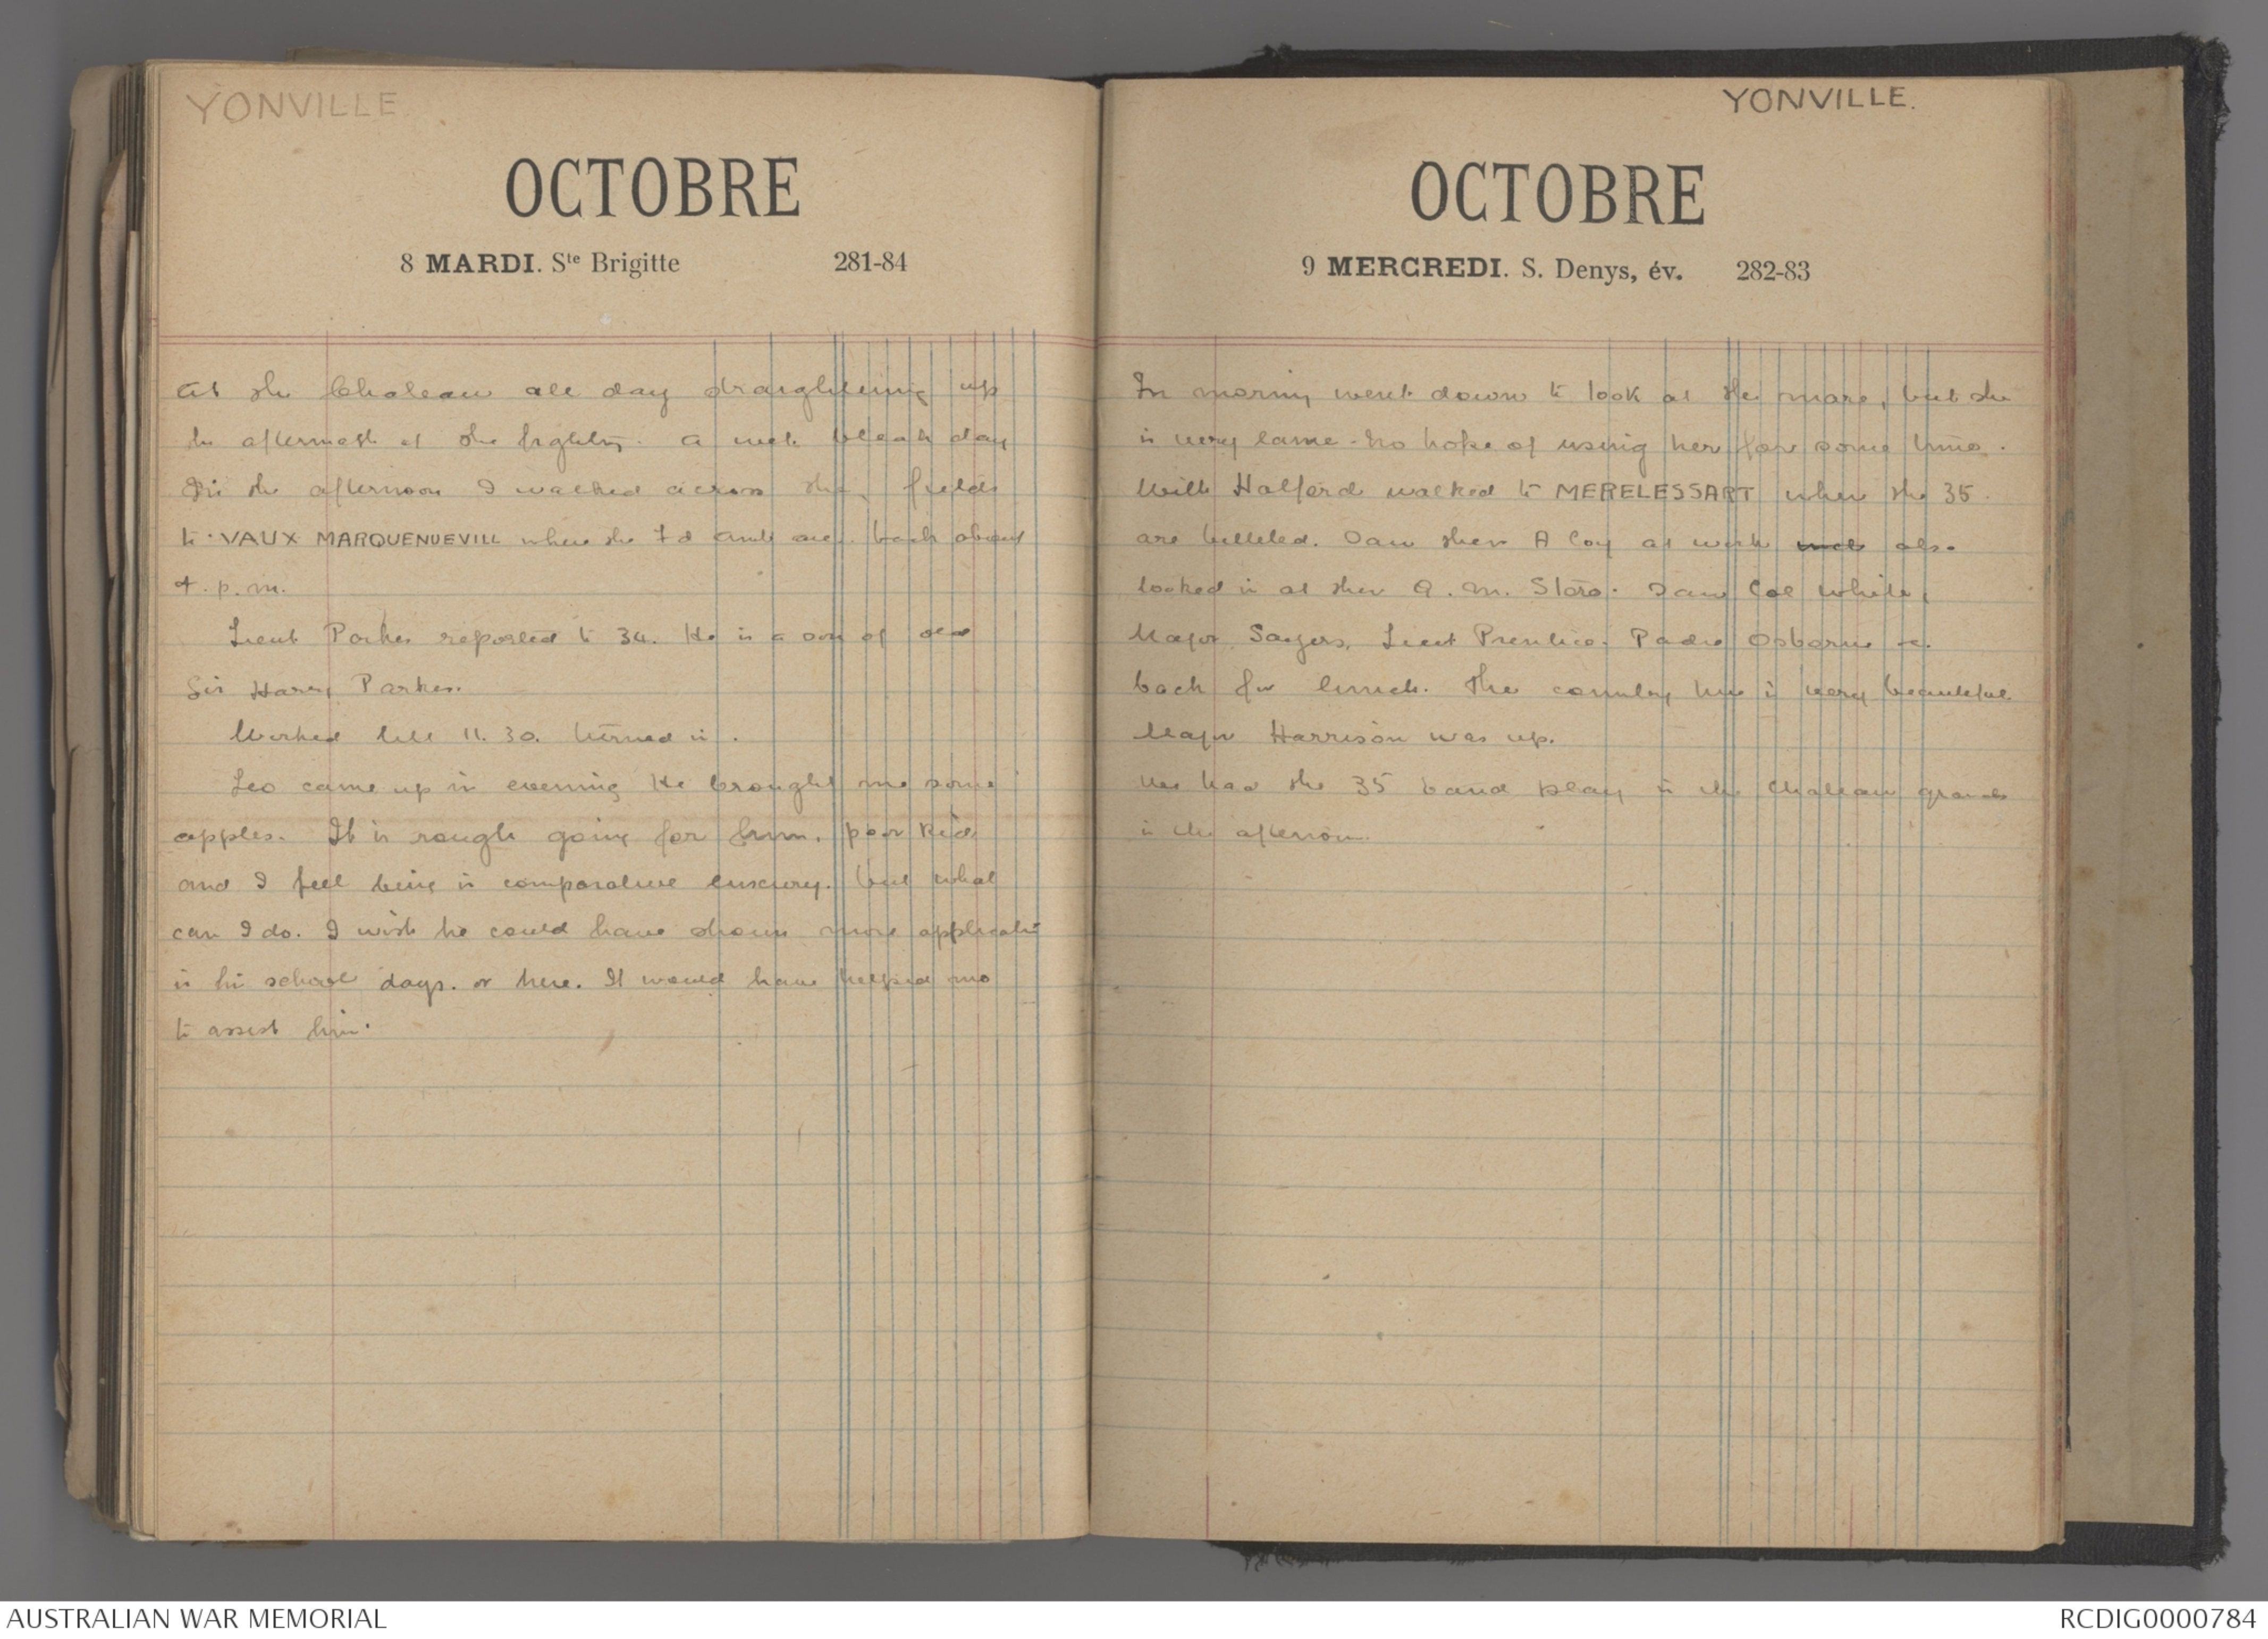 YONVILLE.
OCTOBRE
8 MARDI. Ste Brigitte 281-84
At the Chateau all day straightening up
the aftermath of the fighting. A wet bleak day
In the afternoon I walked across the fields
to VAUX MARQUENUEVILL where the Fd Amb are. back about
4. p.m.
Lieut Parkes reported to 34. He is a son of old
Sir Harry Parkes.
Worked till 11.30. turned in.
Leo came up in evening He brought me some
apples. It is rough going for him. poor kid
and I feel being in comparative luxury. but what
can I do. I wish he could have shown more applicatn
in his school days. or here. It would have helped me
to assist him.
YONVILLE.
OCTOBRE
9 MERCREDI. S. Denys, év. 282-83
In morning went down to look at the mare, but she
is very lame - no hope of using her for some time.
With Halford walked to MERELESSART where the 35
are billeted. Saw their A Coy at work also
looked in at their Q.M. Store. Saw Col White,
Major Sayers, Lieut Prentice, Padre Osborne &c.
back for lunch. The country here is very beautiful
Major Harrison was up.
We had the 35 band play in the Chateau grounds
in the afternoon.
AUSTRALIAN WAR MEMORIAL
RCDIG0000784